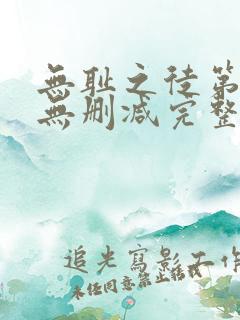 無耻之徒第
無删减完整
追光寫影工作
未任同意禁止转载